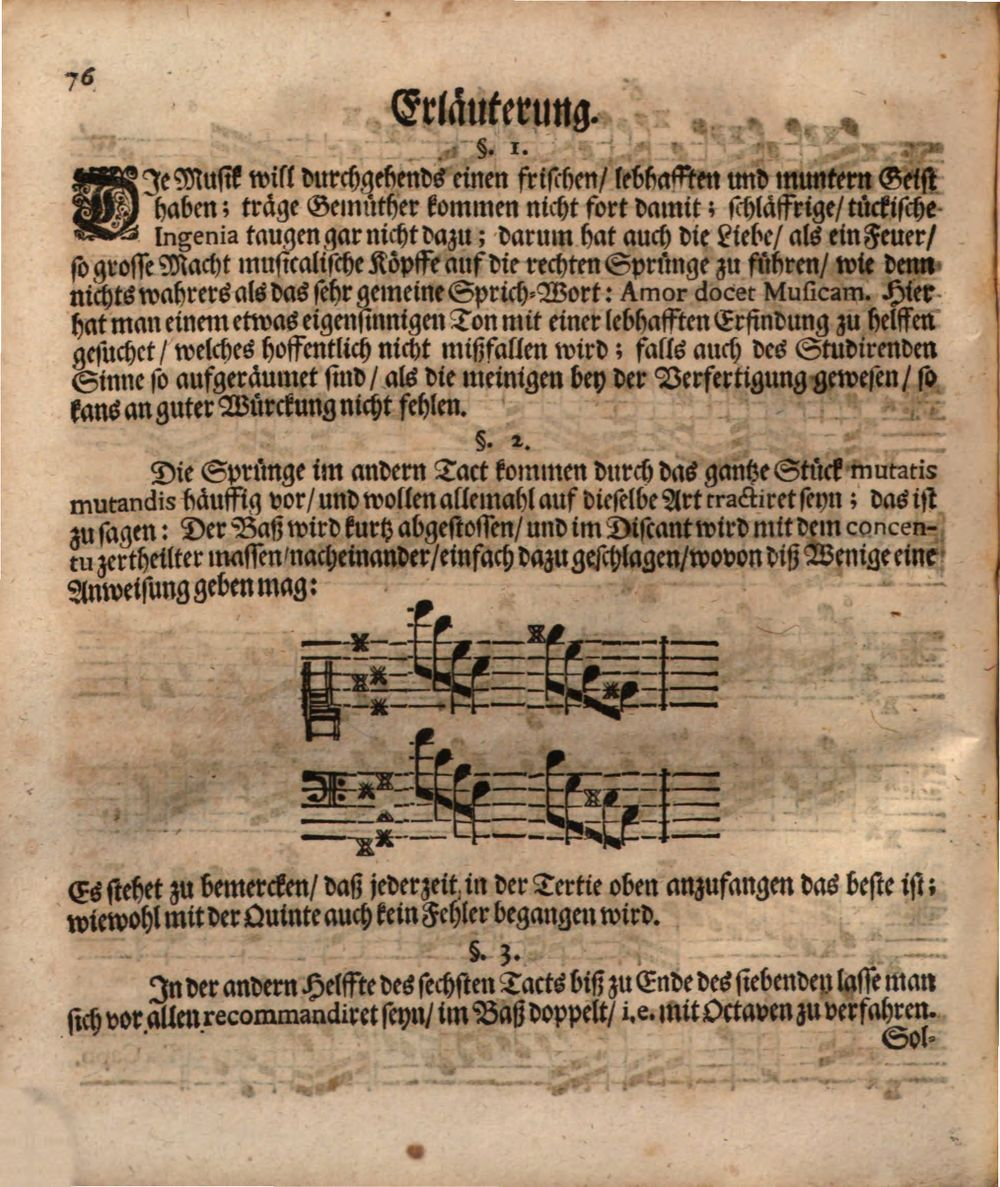 76
Erläuterung.
§. 1.
DIe Musik will durchgehends einen frischen/ lebhafften und muntern Geist
haben; träge Gemüther kommen nicht fort damit; schläffrige/ tückische
Ingenia taugen gar nicht dazu; darum hat auch die Liebe/ als ein Feuer/
so grosse Macht musicalische Köpffe auf die rechten Sprünge zu führen/ wie denn
nichts wahrers als das sehr gemeine Sprich-Wort: Amor docet Musicam. Hier
hat man einem etwas eigensinnigen Ton mit einer lebhafften Erfindung zu helffen
gesuchet/ welches hoffentlich nicht mißfallen wird; falls auch des Studirenden
Sinne so aufgeräumet sind/ als die meinigen bey der Verfertigung gewesen/ so
kans an guter Würckung nicht fehlen.
§. 2.
Die Sprünge im andern Tact kommen durch das gantze Stück mutatis
mutandis häuffig vor/ und wollen allemahl auf dieselbe Art tractiret seyn; das ist
zu sagen: Der Baß wird kurtz abgestossen/ und im Discant wird mit dem concen-
tu zertheilter massen/nacheinander/einfach dazu geschlagen/wovon diß Wenige eine
Anweisung geben mag:
Es stehet zu bemercken/ daß jederzeit in der Tertie oben anzufangen das beste ist;
wiewohl mit der Quinte auch kein Fehler begangen wird.
§. 3.
In der andern Helffte des sechsten Tacts biß zu Ende des siebenden lasse man
sich vor allen recommandiret seyn/ im Baß doppelt/ i.e. mit Octaven zu verfahren.
Sol-